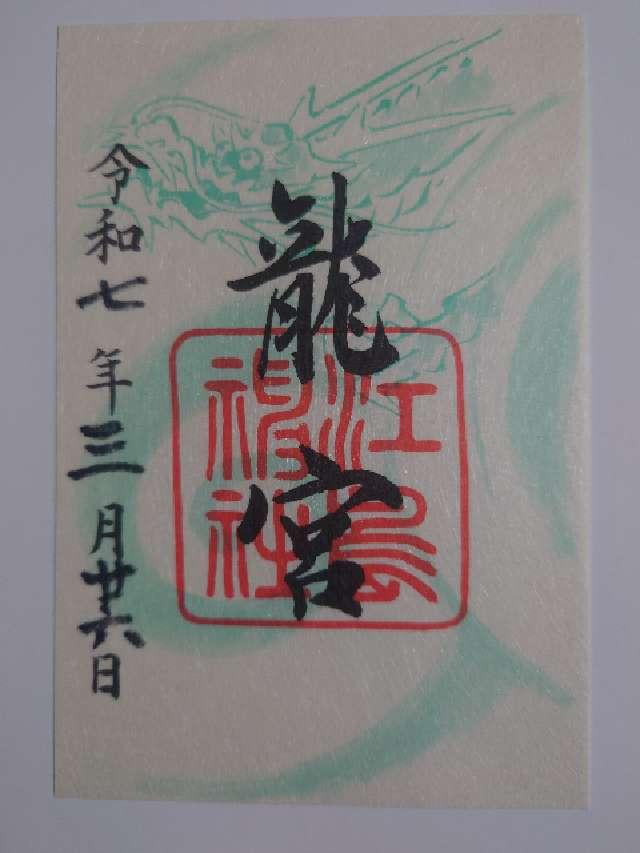 龍宮
江島神社
令和七年三月廿六日